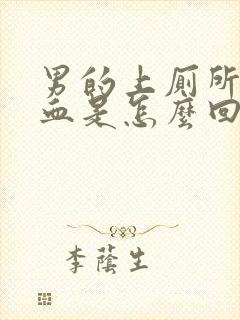 男的上厕所
血是怎麼回
李蔭生